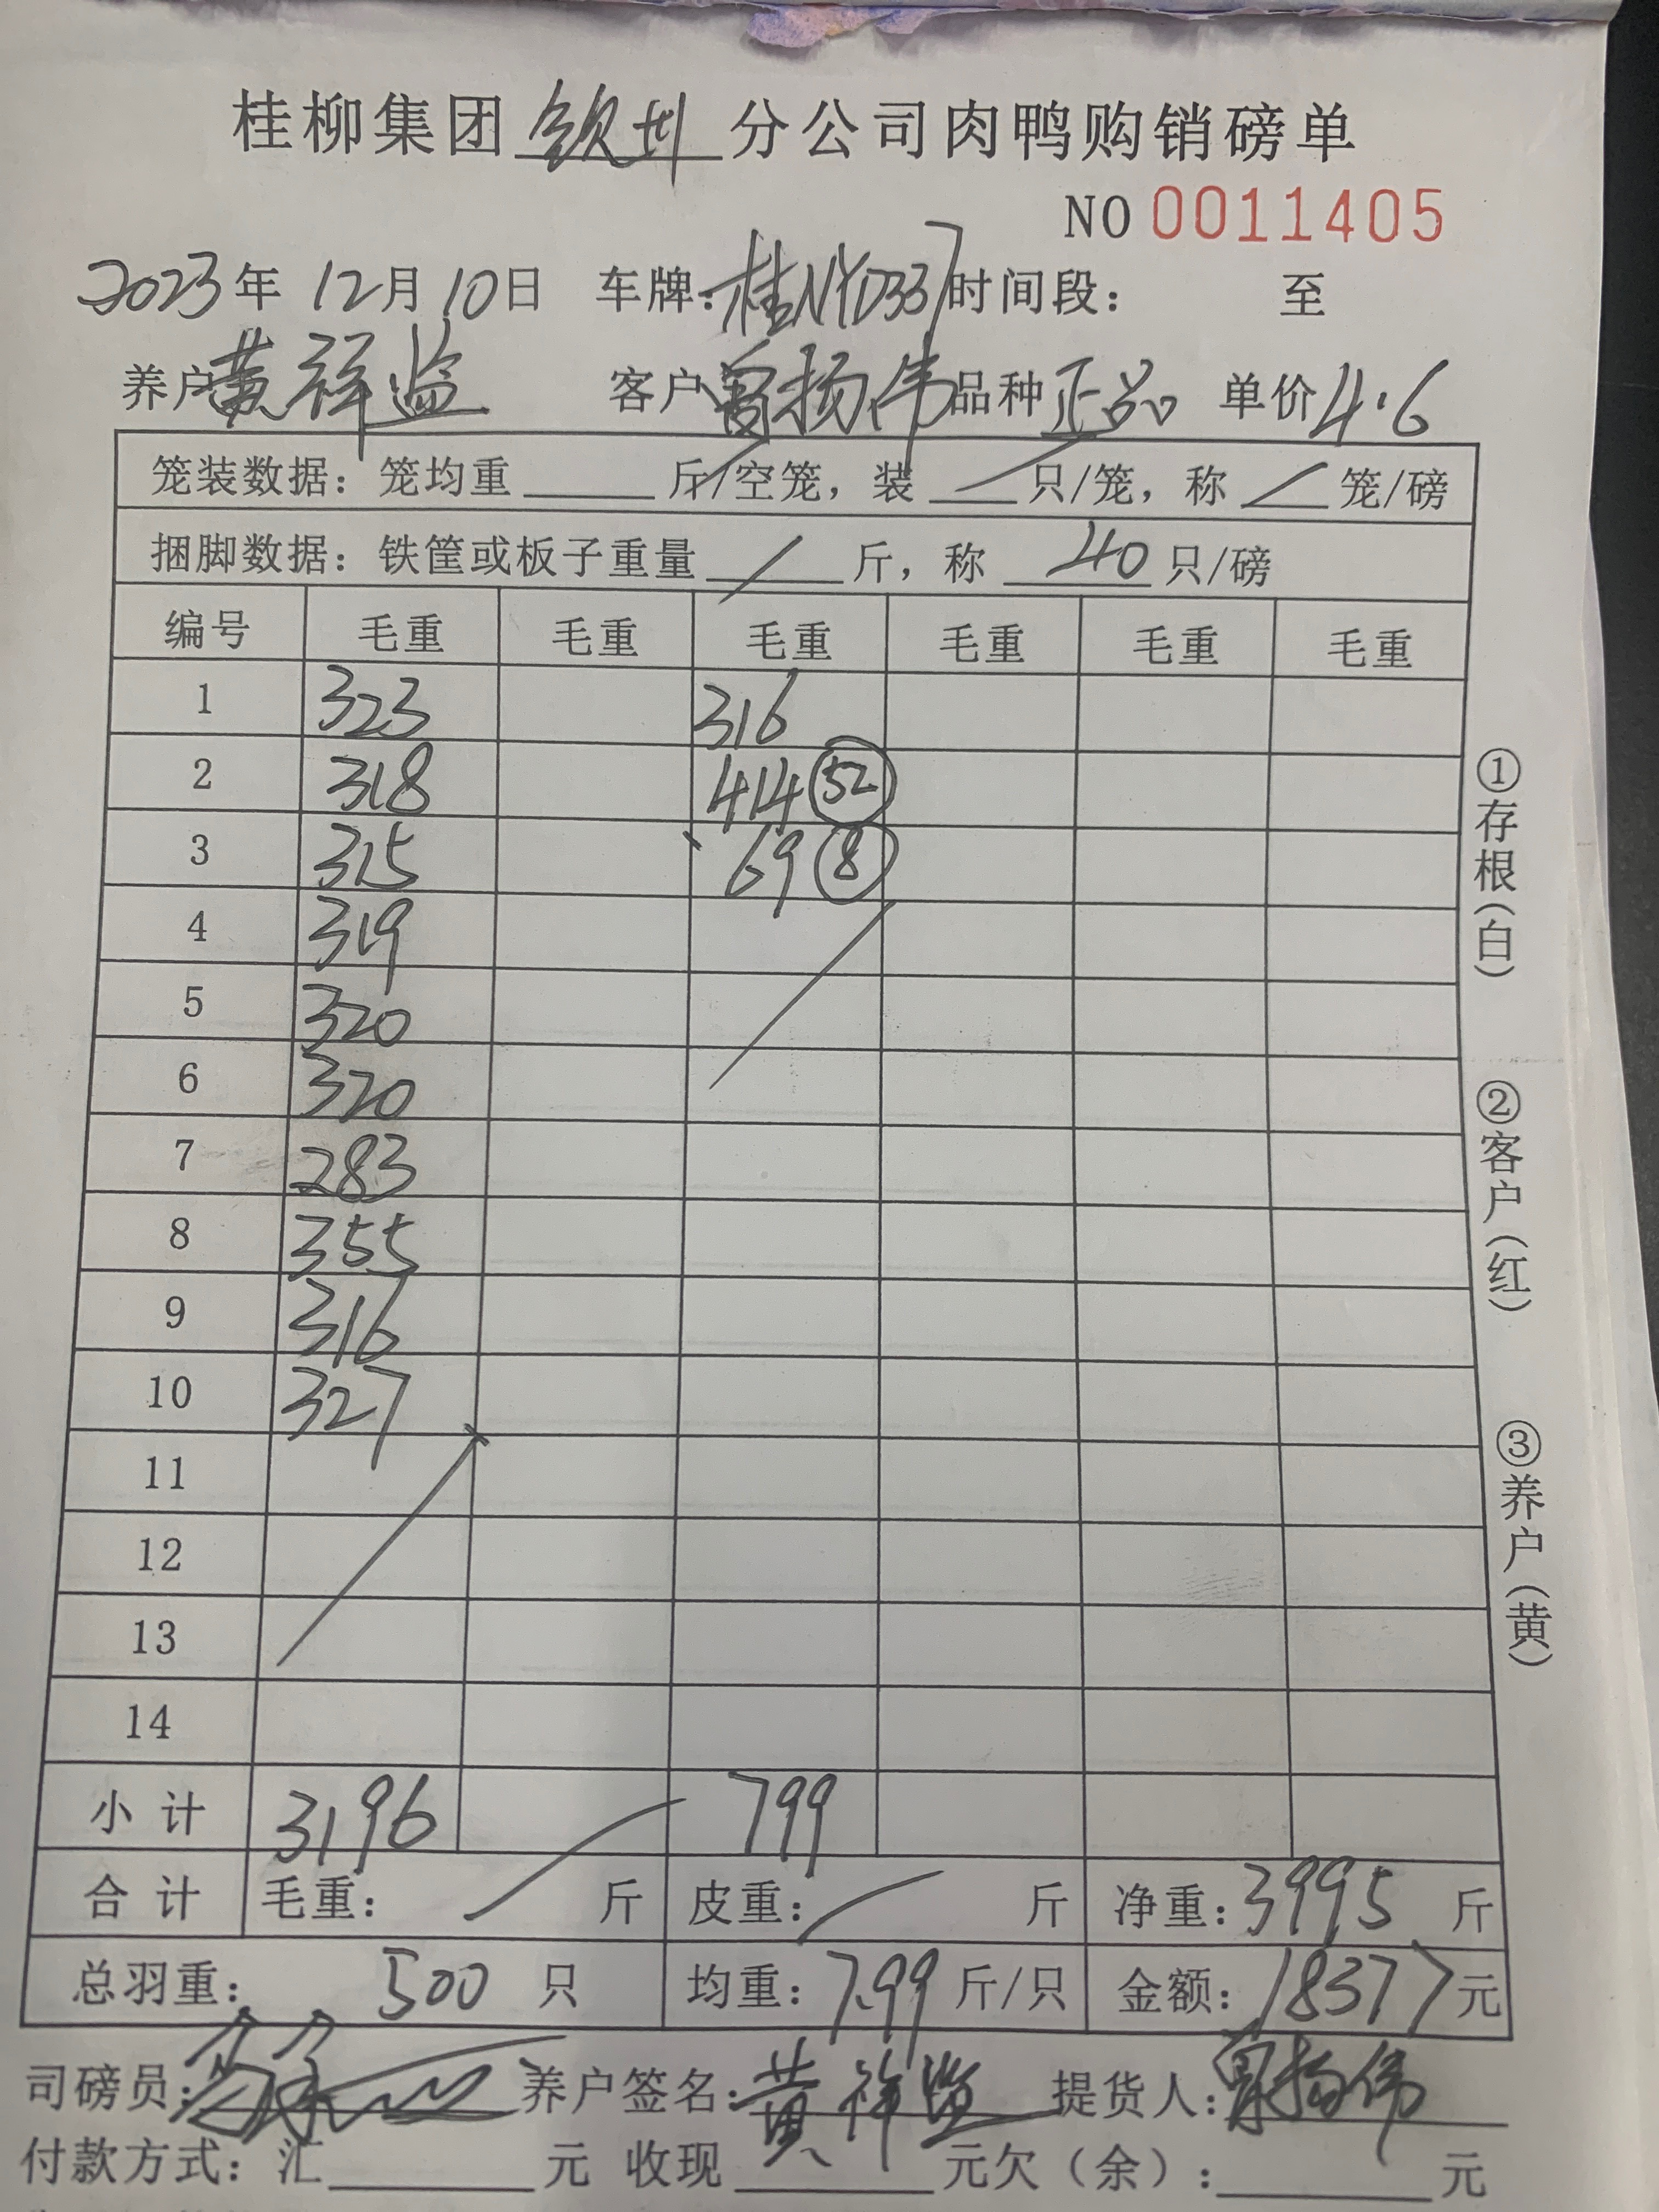 桂柳集团钦州分公司肉鸭购销磅单
NO 0011405
2023年 12月 10日 车牌:桂NYD337 时间段: 至
养户 黄祥益 客户 曾扬伟 品种 正品 单价 4.6
笼装数据: 笼均重 斤/空笼, 装 / 只/笼, 称 / 笼/磅
捆脚数据: 铁筐或板子重量 / 斤, 称 40 只/磅
编号 毛重 毛重 毛重 毛重 毛重 毛重
1 323 316
2 318 414 52
3 315 69 8
4 319
5 320
6 320
7 283
8 355
9 316
10 327
11
12
13
14
小计 3196 799
合计 毛重: / 斤 皮重: / 斤 净重: 3995 斤
总羽重: 500 只 均重: 7.99 斤/只 金额: 18377 元
司磅员: 养户签名: 黄祥益 提货人: 曾扬伟
付款方式: 汇 元 收现 元欠(余): 元
①存根(白)
②客户(红)
③养户(黄)